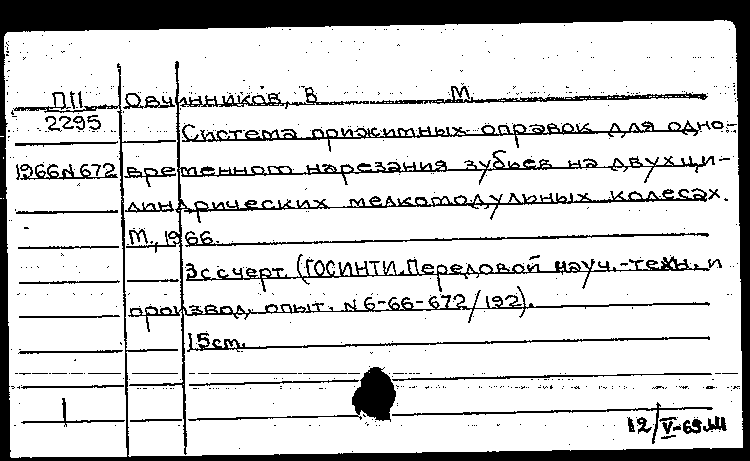 ПII Овчинников, В М
2295 Система прижимных оправок для одно-
1966 N 672 временного нарезания зубьев на двух ци-
линдрических мелкомодульных колесах.
М., 1966.
3с с черт. (ГОСИНТИ. Передовой науч.-техн. и
производ. опыт. N 6-66-672/192).
15ст.
12/V-69